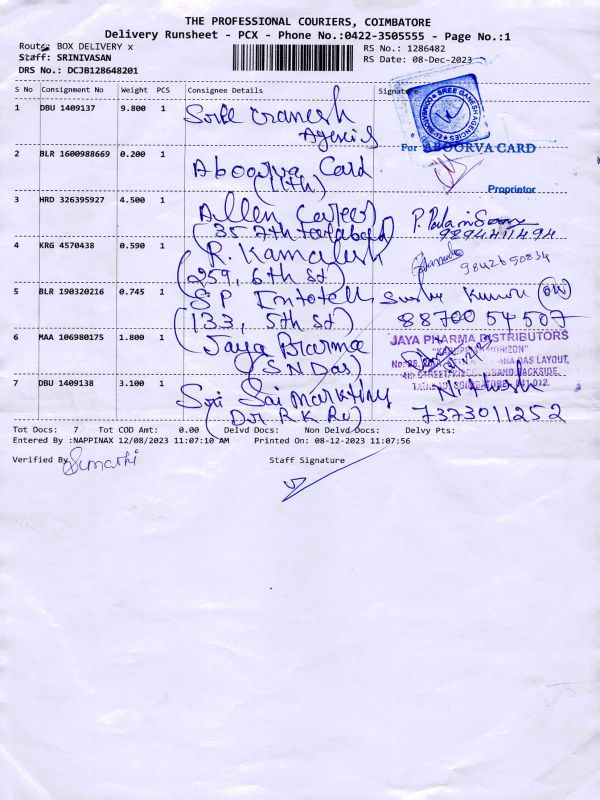 THE PROFESSIONAL COURIERS, COIMBATORE
Delivery Runsheet - PCX - Phone No.:0422-3505555 - Page No.:1
Route: BOX DELIVERY x
RS No.: 1286482
Staff: SRINIVASAN
RS Date: 08-Dec-2023
DRS No.: DCJB128648201
S No Consignment No Weight PCS Consignee Details Signature
1 DBU 1409137 9.800 1 Sree Ganesh
Agencis
SREE GANESH AGENCIES
2 BLR 1600988669 0.200 1 Aboorva Card
(11th)
For ABOORVA CARD
Proprietor
3 HRD 326395927 4.500 1 Allen Career
9894411494
4 KRG 4570438 0.590 1 R. Kamalesh
(259, 6th St)
9842650834
5 BLR 190320216 0.745 1 SP Infotell
(133, 5th St)
8870054507
6 MAA 106980175 1.800 1 Jaya Pharma
(SN Das)
JAYA PHARMA DISTRIBUTORS
7 DBU 1409138 3.100 1 Sri Sai Markting
Nithesh
7373011252
Tot Docs: 7 Tot COD Amt: 0.00 Delvd Docs: Non Delvd Docs: Delvy Pts:
Entered By :NAPPINAX 12/08/2023 11:07:10 AM Printed On: 08-12-2023 11:07:56
Verified By Sumathi Staff Signature